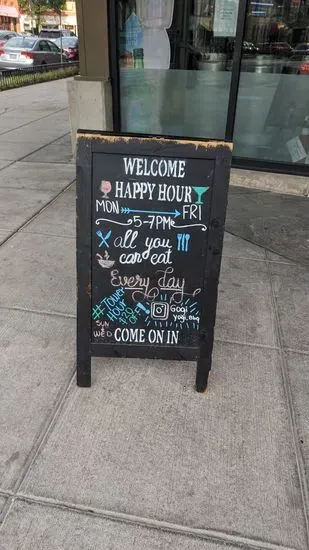 WELCOME
HAPPY HOUR
MON FRI
5-7PM
all you
can eat
Every day
#Tower
Hour
SUN
WED
Gogi
yogi.bbq
COME ON IN